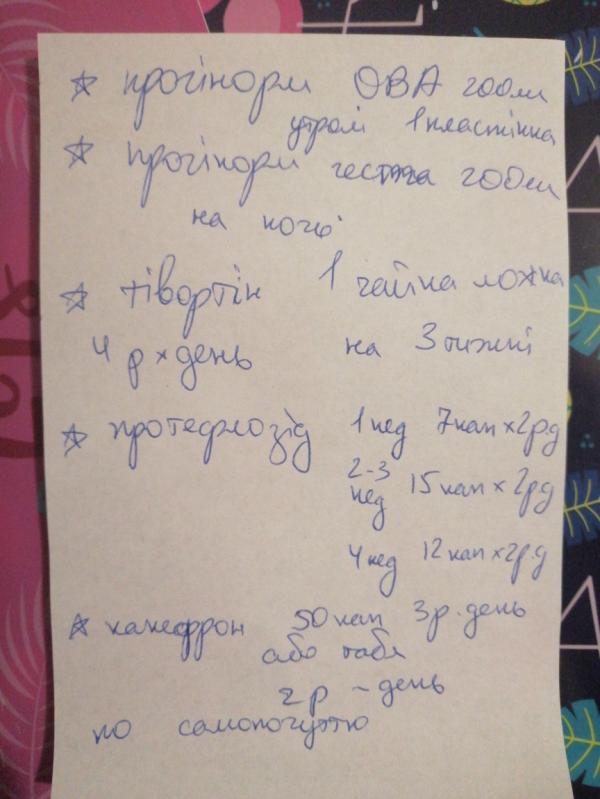 ☆ прогінорм ОВА годи
утром 1 пластінка
☆ прогінорм геста годи
на ночь
☆ тівортін 1 чайна ложка
4 р × день на 3 тижні
☆ протефлозід 1 нед 7 кап × 2 р д
2-3 нед 15 кап × 2 р д
4 нед 12 кап × 2 р.д
☆ канефрон 50 кап 3 р. день
або табл
2 р - день
по самопочуттю